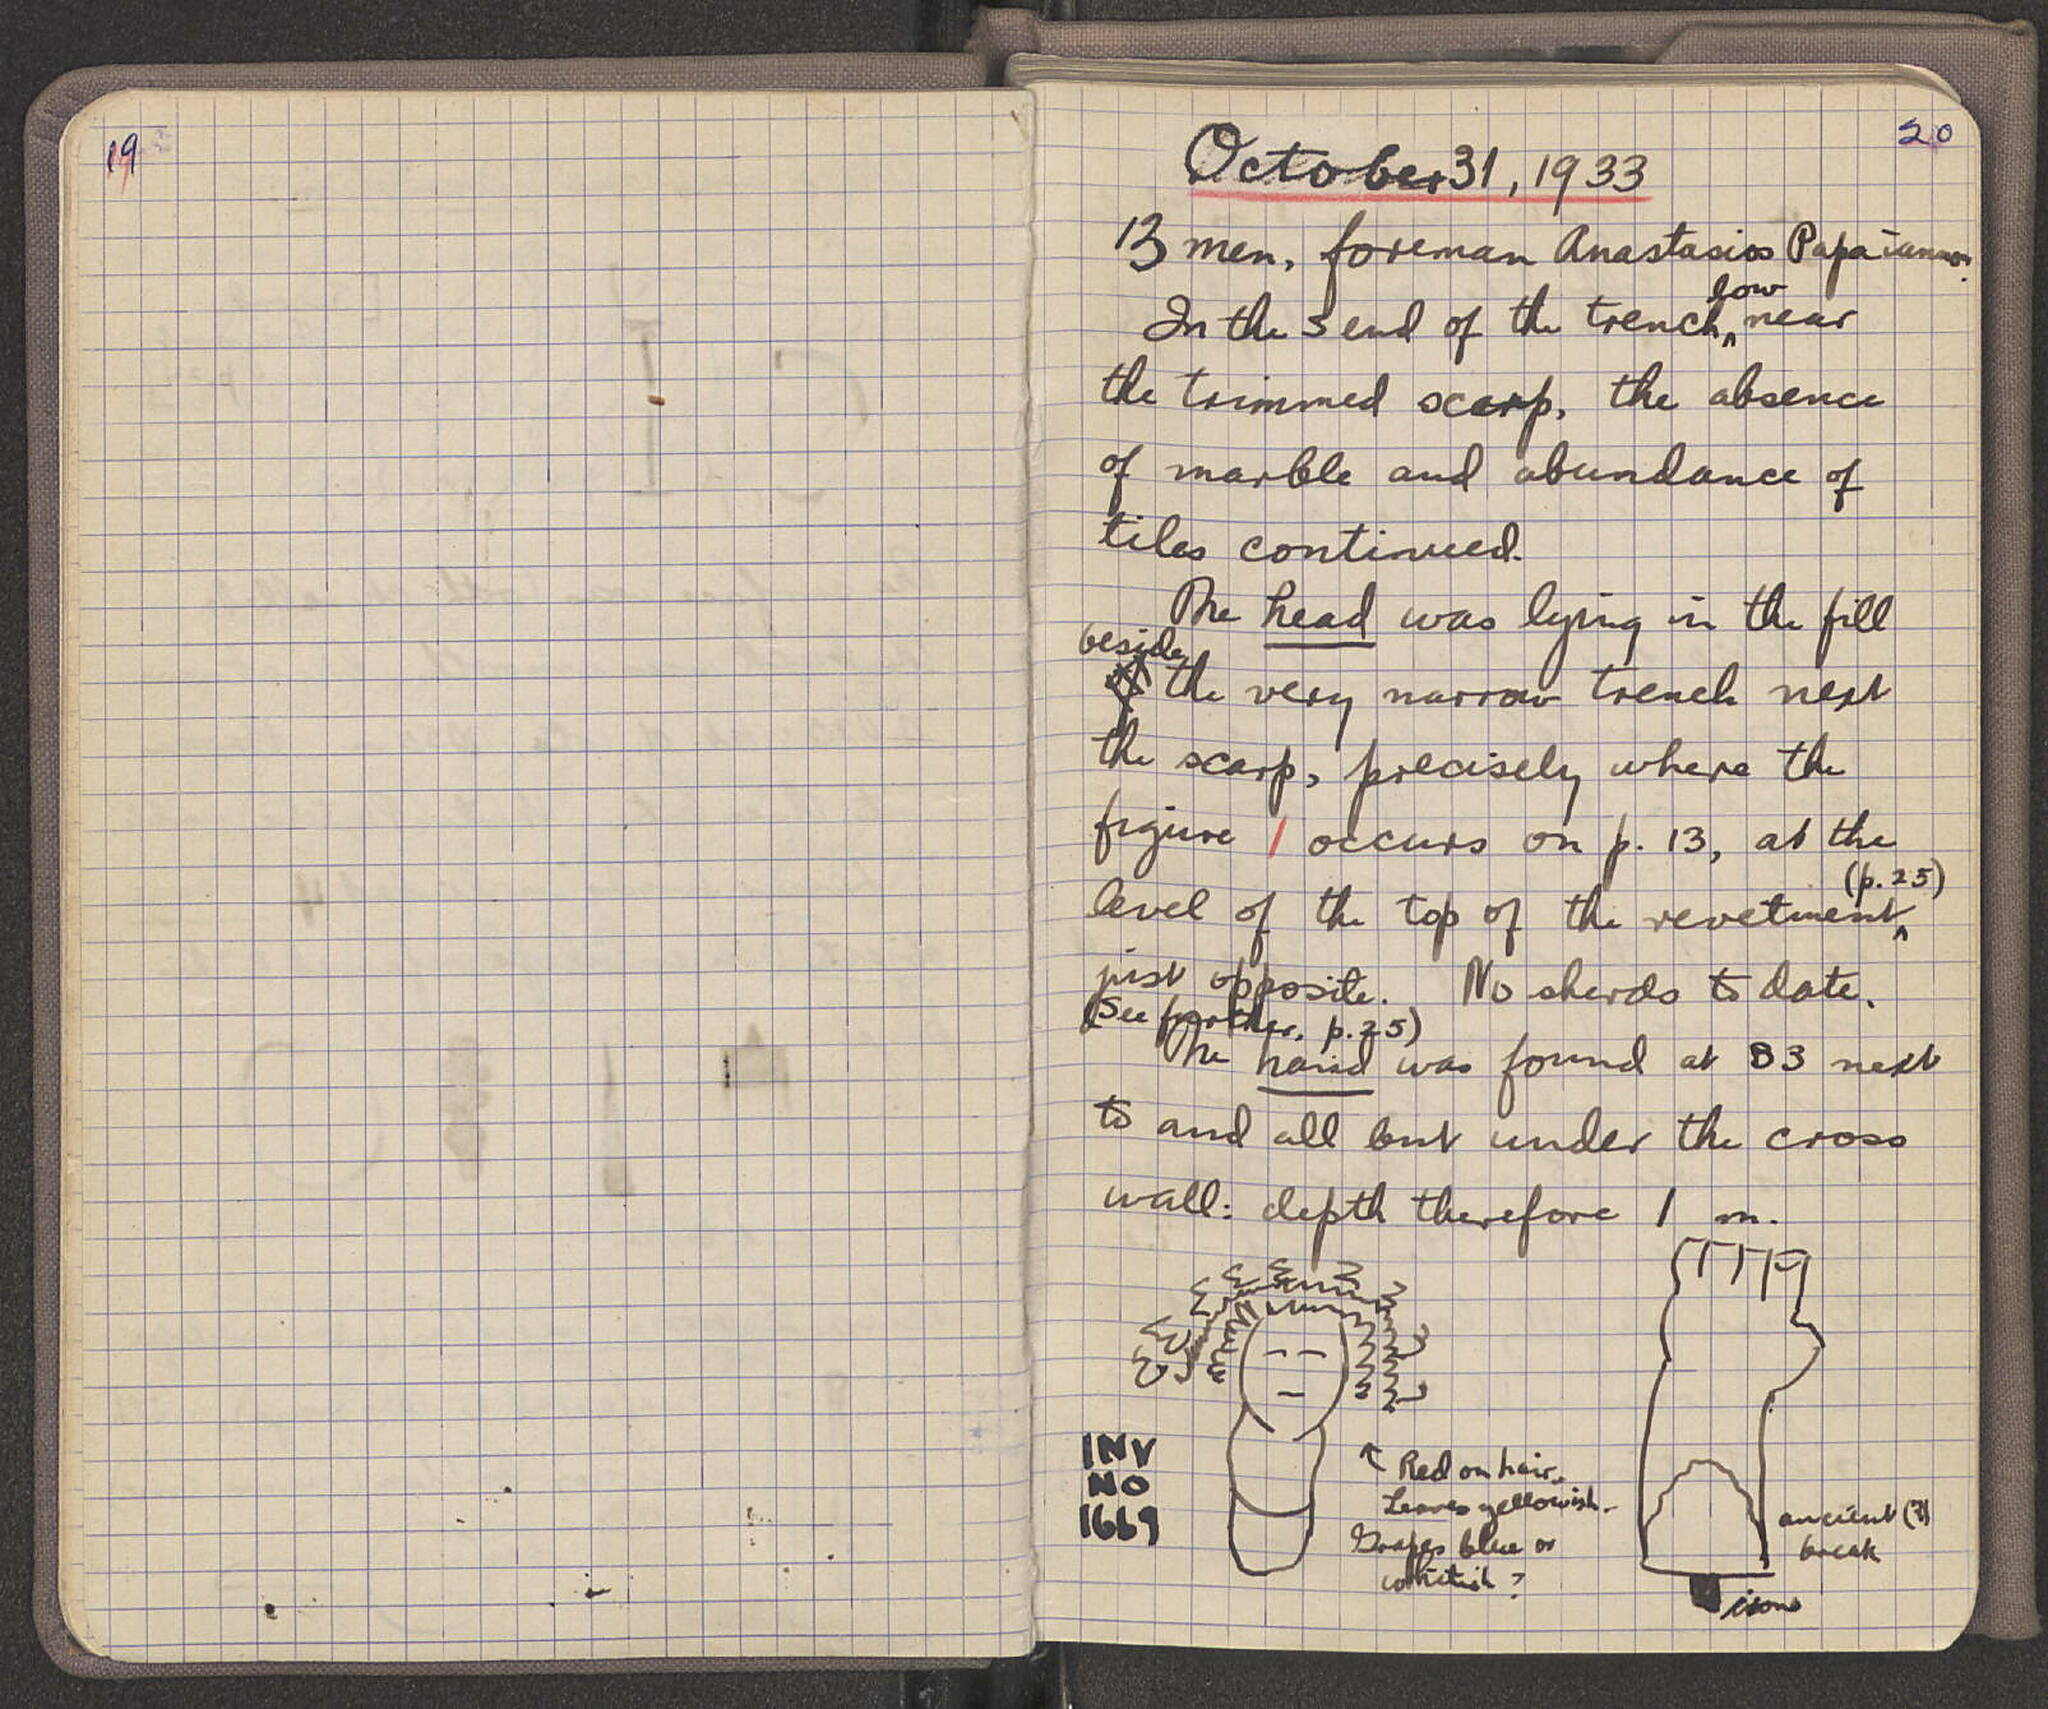 19
20
October 31, 1933
13 men, foreman Anastasios Papaioannou.
In the S end of the trench, low near
the trimmed scarp, the absence
of marble and abundance of
tiles continued.
The head was lying in the fill
beside the very narrow trench next
the scarp, precisely where the
figure 1 occurs on p. 13, at the
level of the top of the revetment (p. 25)
just opposite. No sherds to date.
(See further, p. 25)
The hand was found at B3 next
to and all but under the cross
wall: depth therefore 1 m.
INV
NO
1669
Red on hair.
Leaves yellowish.
Grapes blue or
whitish?
ancient (?)
break
iron